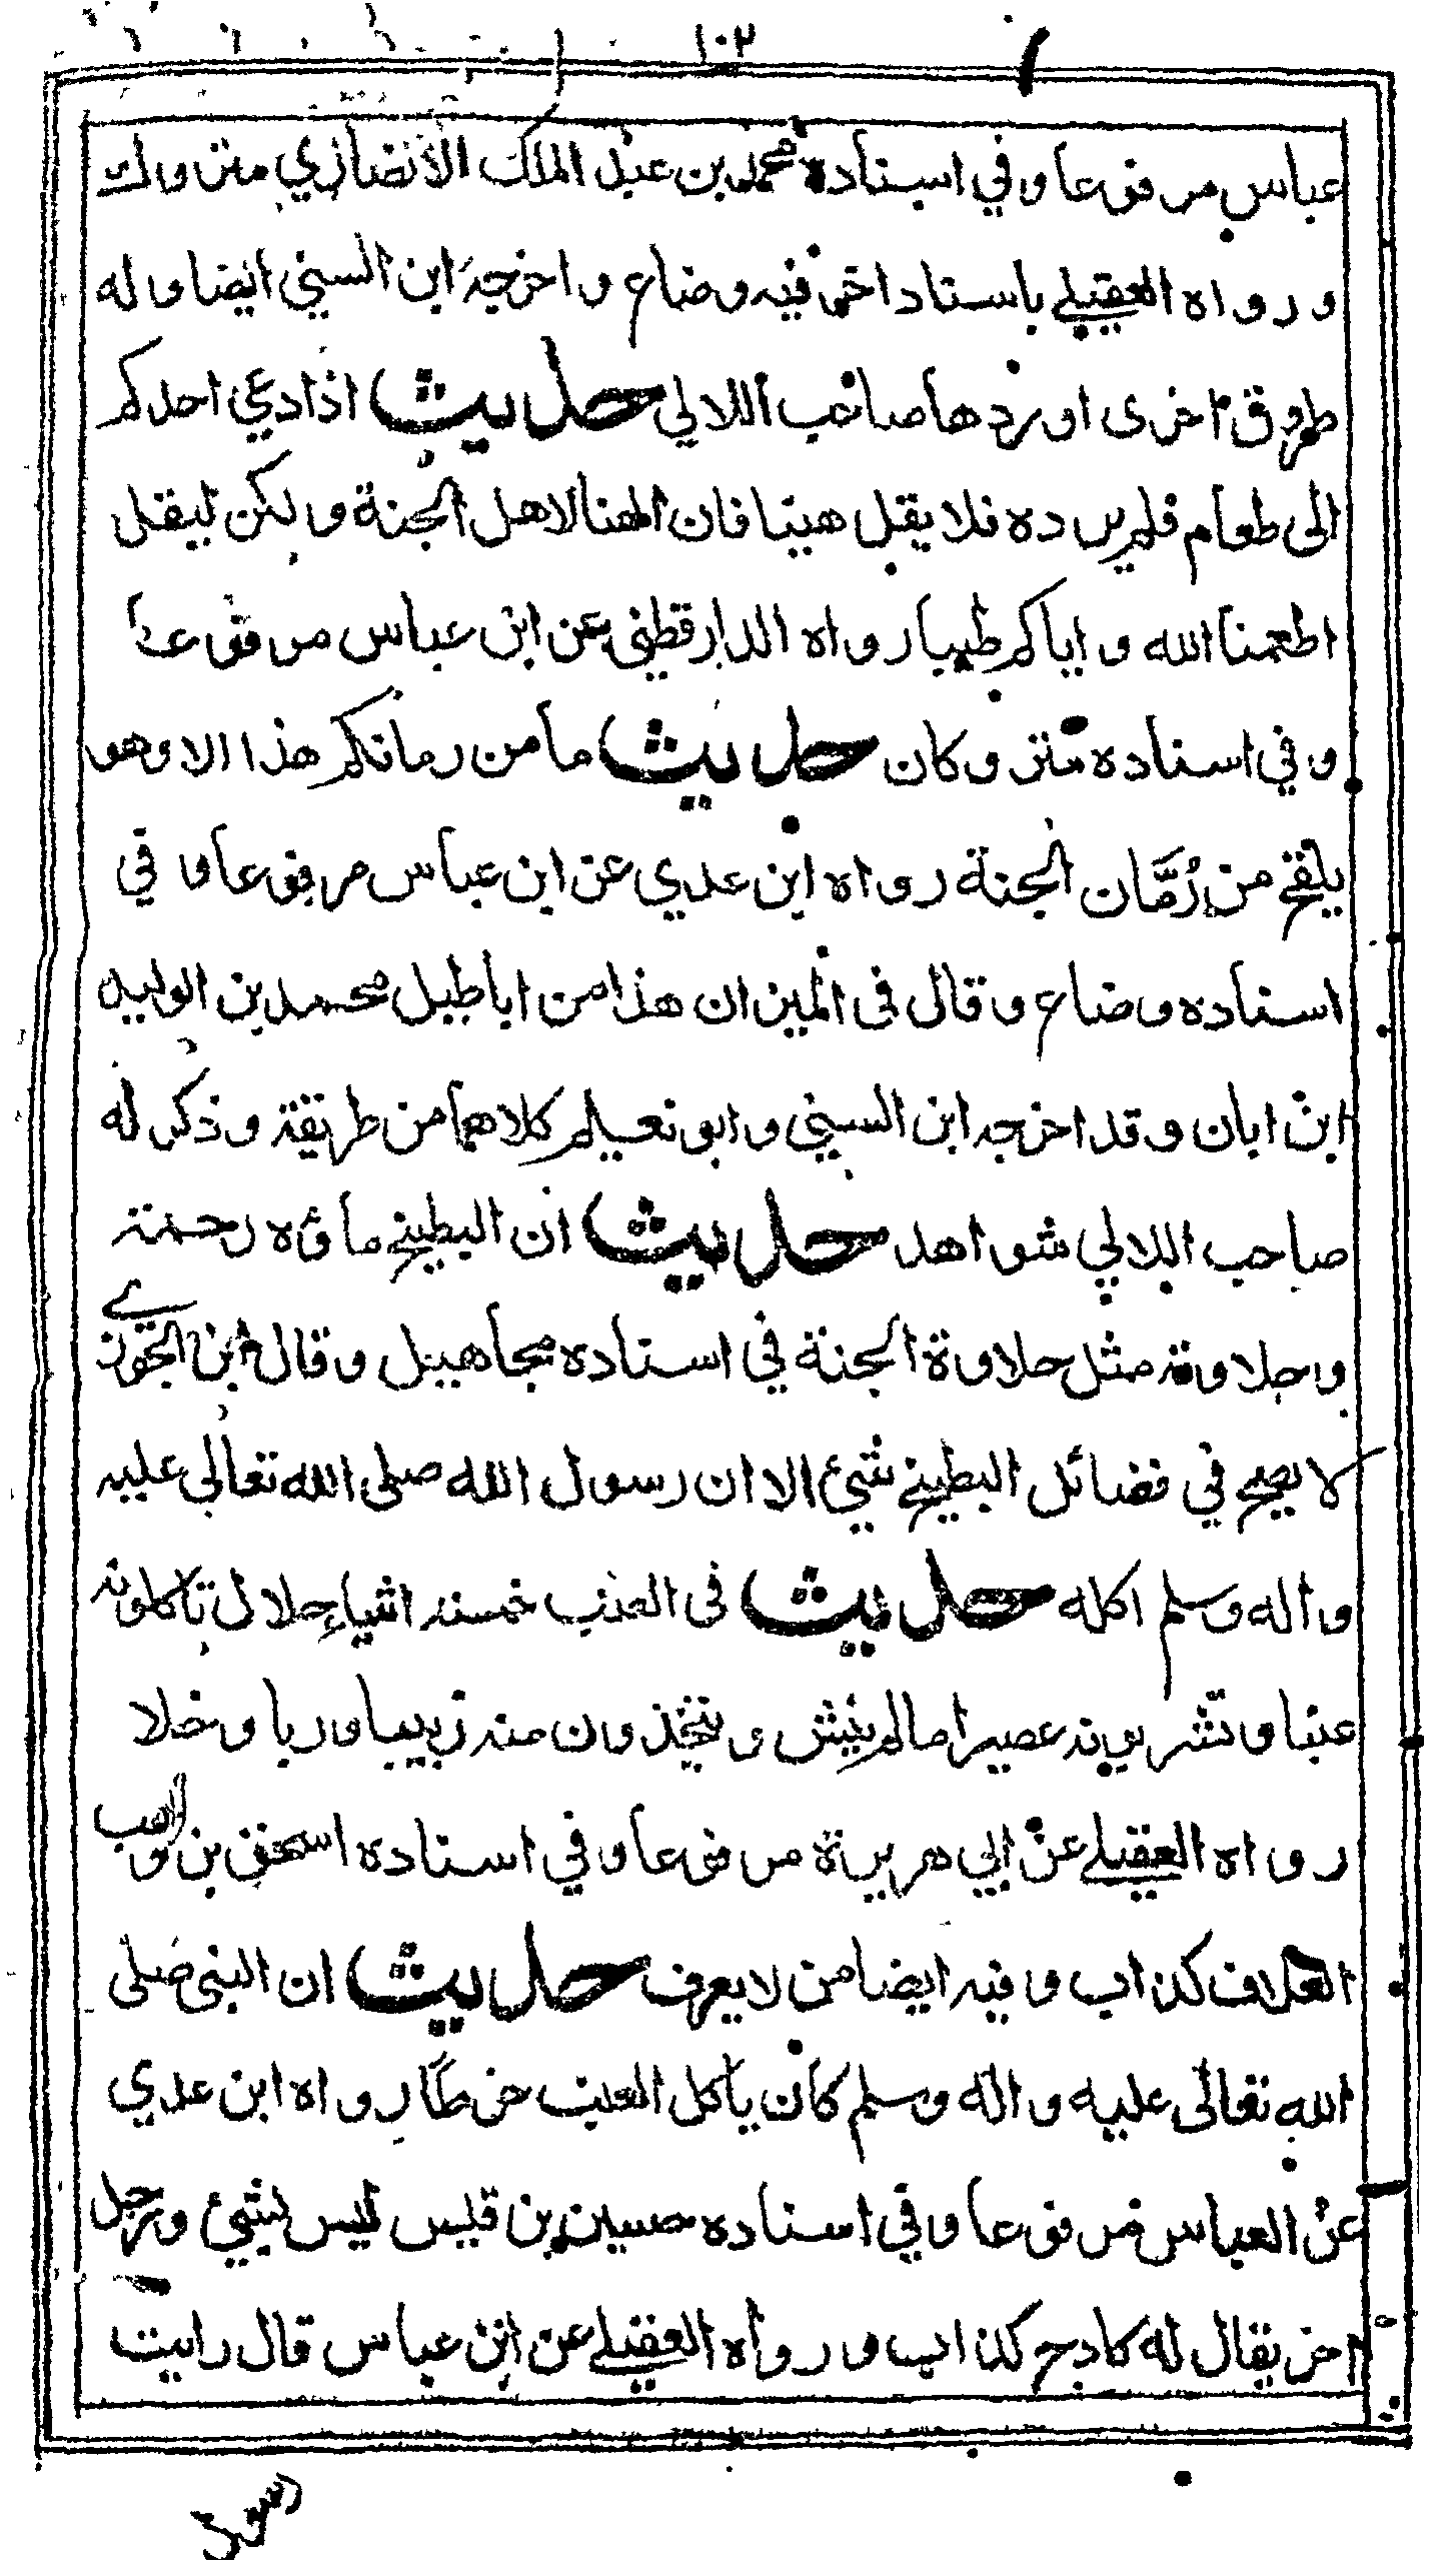 ١٠٢
عباس مرفوعا وفي اسناده محمد بن عبد الملك الأنصاري متروك
ورواه العقيلے باسناد اخر فيه وضاع واخرجه ابن السني ايضا وله
طرق اخرى اوردها صاحب اللالي حديث اذا دعي احدكم
الى طعام فلم يرده فلا يقل هنيئا فان الهنا لاهل الجنة ولكن ليقل
اطعمنا الله واياكم طيبا رواه الدارقطني عن ابن عباس مرفوعا
وفي اسناده متروكان حديث ما من رمانكم هذا الا وهو
يلقح من رُمَّان الجنة رواه ابن عدي عن ابن عباس مرفوعا وفي
اسناده وضاع وقال فى الميزان هذا من اباطيل محمد بن الوليد
ابن ابان وقد اخرجه ابن السني وابو نعيم كلاهما من طريقة وذكر له
صاحب اللالي شواهد حديث ان البطيخ ماؤه رحمة
وحلاوته مثل حلاوة الجنة في اسناده مجاهيل وقال ابن الجوزے
لا يصح في فضائل البطيخ شيئ الا ان رسول الله صلى الله تعالى عليه
واله وسلم اكله حديث فى العنب خمسة اشياء حلال تاكلونه
عنبا وتشربونه عصيرا مالم ينش وتتخذون منه زبيبا وربا وخلا
رواه العقيلے عن ابي هريرة مرفوعا وفي اسناده اسحق بن وهب
العلاف كذاب وفيه ايضا من لا يعرف حديث ان النبى صلى
الله تعالى عليه واله وسلم كان ياكل العنب خرطا رواه ابن عدي
عن العباس مرفوعا وفي اسناده حسين بن قيس ليس بشيئ ورجل
اخر يقال له كادح كذاب ورواه العقيلے عن ابن عباس قال رايت
رسول